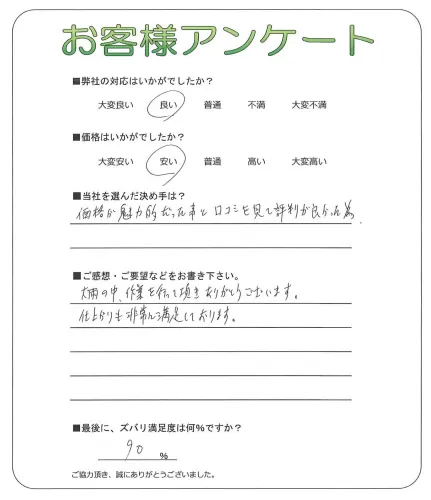 お客様アンケート
■弊社の対応はいかがでしたか？
大変良い 良い 普通 不満 大変不満
■価格はいかがでしたか？
大変安い 安い 普通 高い 大変高い
■当社を選んだ決め手は？
価格が魅力的だった事と口コミを見て評判が良かった為.
■ご感想・ご要望などをお書き下さい。
大雨の中、作業を行って頂きありがとうございます。
仕上がりも非常に満足しております。
■最後に、ズバリ満足度は何％ですか？
90 %
ご協力頂き、誠にありがとうございました。